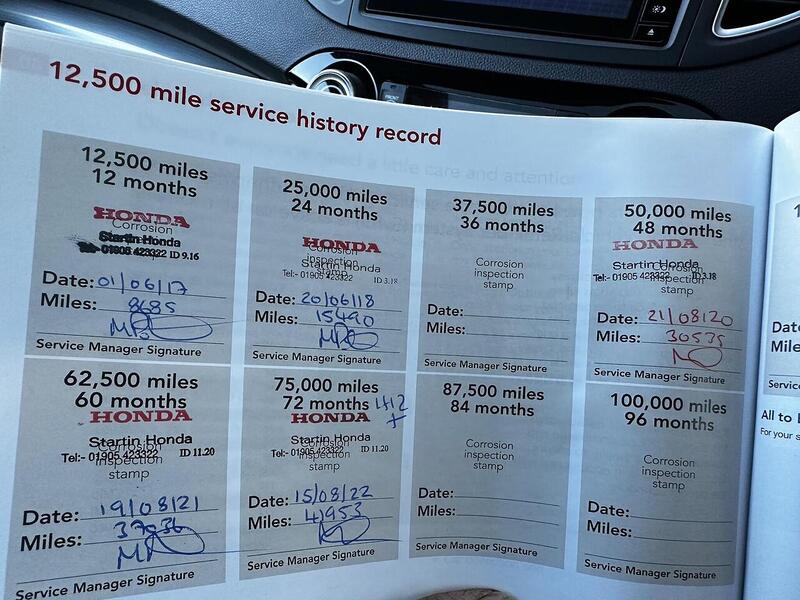 12,500 mile service history record
12,500 miles
12 months
HONDA
Corrosion
Startin Honda
Tel:- 01905 423322 ID 9.16
Date: 01/06/17
Miles: 8685
Service Manager Signature
25,000 miles
24 months
HONDA
Corrosion
inspection
Startin Honda
stamp
Tel:- 01905 423322 ID 3.18
Date: 20/06/18
Miles: 15490
Service Manager Signature
37,500 miles
36 months
Corrosion
inspection
stamp
Date:
Miles:
Service Manager Signature
50,000 miles
48 months
HONDA
Startin Honda
Corrosion
Tel:- 01905 423322 ID 3.18
inspection
stamp
Date: 21/08/20
Miles: 30535
Service Manager Signature
62,500 miles
60 months
HONDA
Startin Honda
Corrosion
Tel:- 01905 423322 ID 11.20
inspection
stamp
Date: 19/08/21
Miles: 37036
Service Manager Signature
75,000 miles
72 months
HONDA
Startin Honda
Corrosion
Tel:- 01905 423322 ID 11.20
inspection
stamp
Date: 15/08/22
Miles: 41953
Service Manager Signature
87,500 miles
84 months
Corrosion
inspection
stamp
Date:
Miles:
Service Manager Signature
100,000 miles
96 months
Corrosion
inspection
stamp
Date:
Miles:
Service Manager Signature
All to
For your